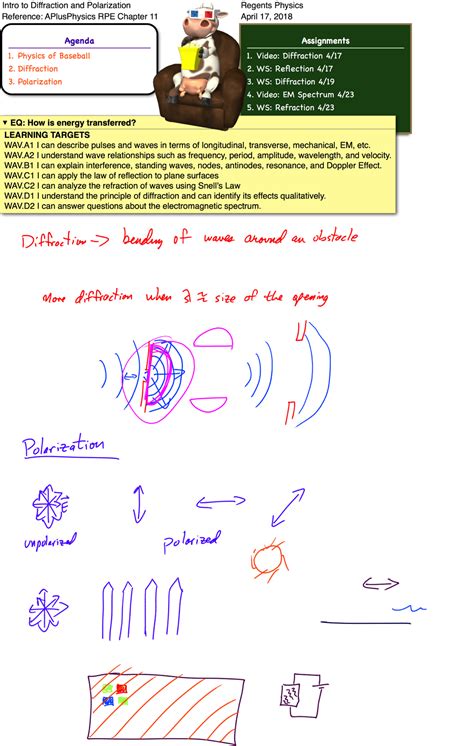 Intro to Diffraction and Polarization
Reference: APlusPhysics RPE Chapter 11
Regents Physics
April 17, 2018
Agenda
1. Physics of Baseball
2. Diffraction
3. Polarization
Assignments
1. Video: Diffraction 4/17
2. WS: Reflection 4/17
3. WS: Diffraction 4/19
4. Video: EM Spectrum 4/23
5. WS: Refraction 4/23
▼ EQ: How is energy transferred?
LEARNING TARGETS
WAV.A1 I can describe pulses and waves in terms of longitudinal, transverse, mechanical, EM, etc.
WAV.A2 I understand wave relationships such as frequency, period, amplitude, wavelength, and velocity.
WAV.B1 I can explain interference, standing waves, nodes, antinodes, resonance, and Doppler Effect.
WAV.C1 I can apply the law of reflection to plane surfaces
WAV.C2 I can analyze the refraction of waves using Snell's Law
WAV.D1 I understand the principle of diffraction and can identify its effects qualitatively.
WAV.D2 I can answer questions about the electromagnetic spectrum.
Diffraction -> bending of waves around an obstacle
More diffraction when λ ≈ size of the opening
Polarization
E
unpolarized
polarized